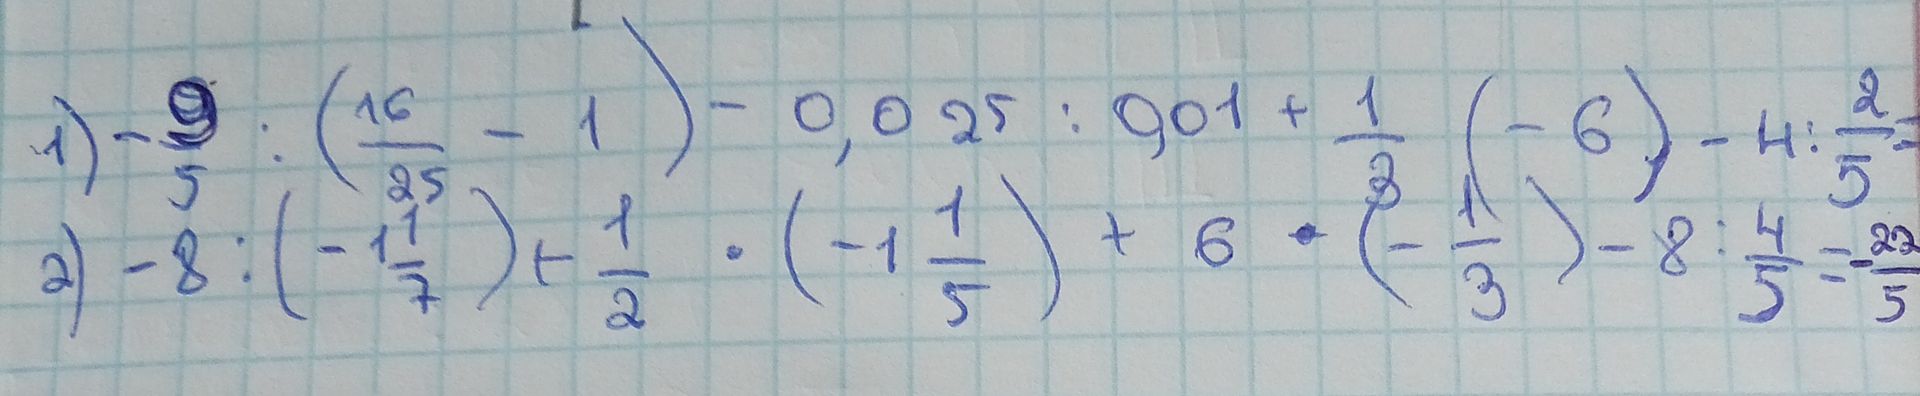 1) - 9/5 : (16/25 - 1) - 0,025 : 0,01 + 1/3 (-6) - 4 : 2/5 =
2) - 8 : (-1 1/7) + 1/2 · (-1 1/5) + 6 · (- 1/3) - 8 : 4/5 = - 22/5